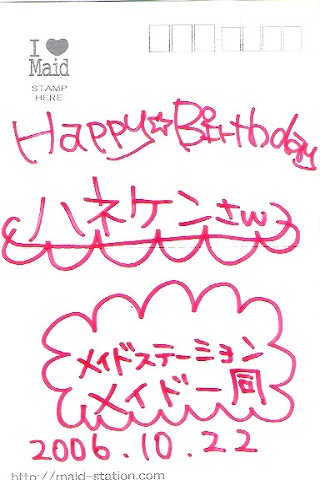 I ♥
Maid
STAMP
HERE
Happy☆Birthday
ハネケンさん
メイドステーション
メイド一同
2006.10.22
http://maid-station.com